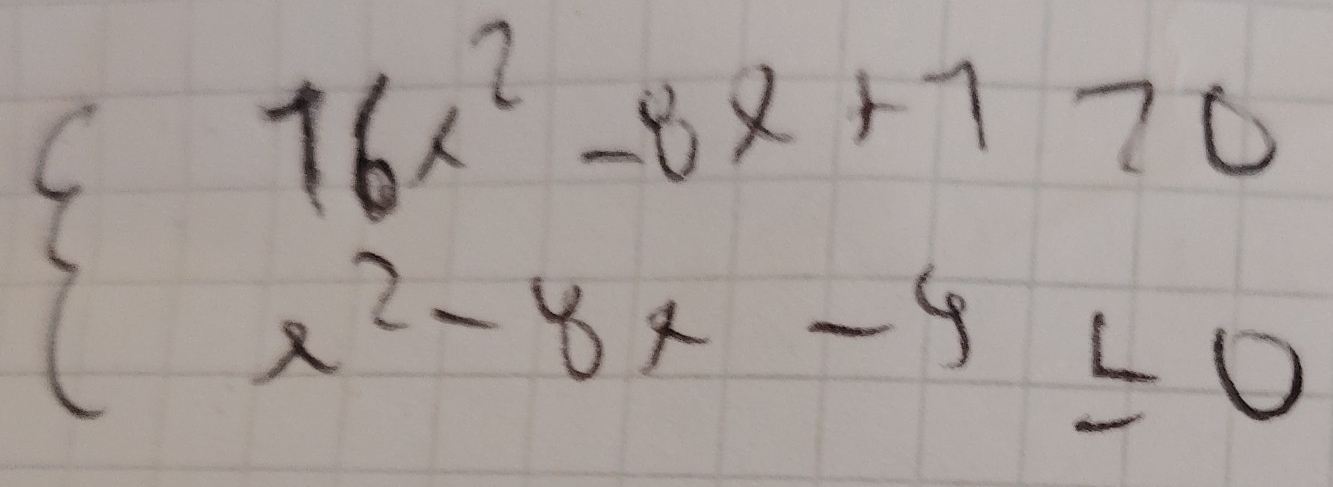 16x² - 8x + 1 > 0
x² - 8x - 9 ≤ 0